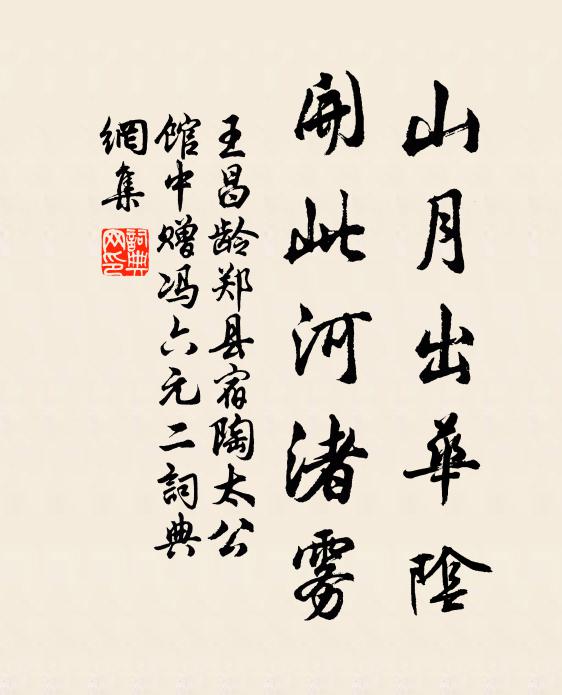 山月出華陰
開此河渚霧
王昌龄郑县宿陶太公
馆中赠冯六元二詞典
網集
詞典
网印